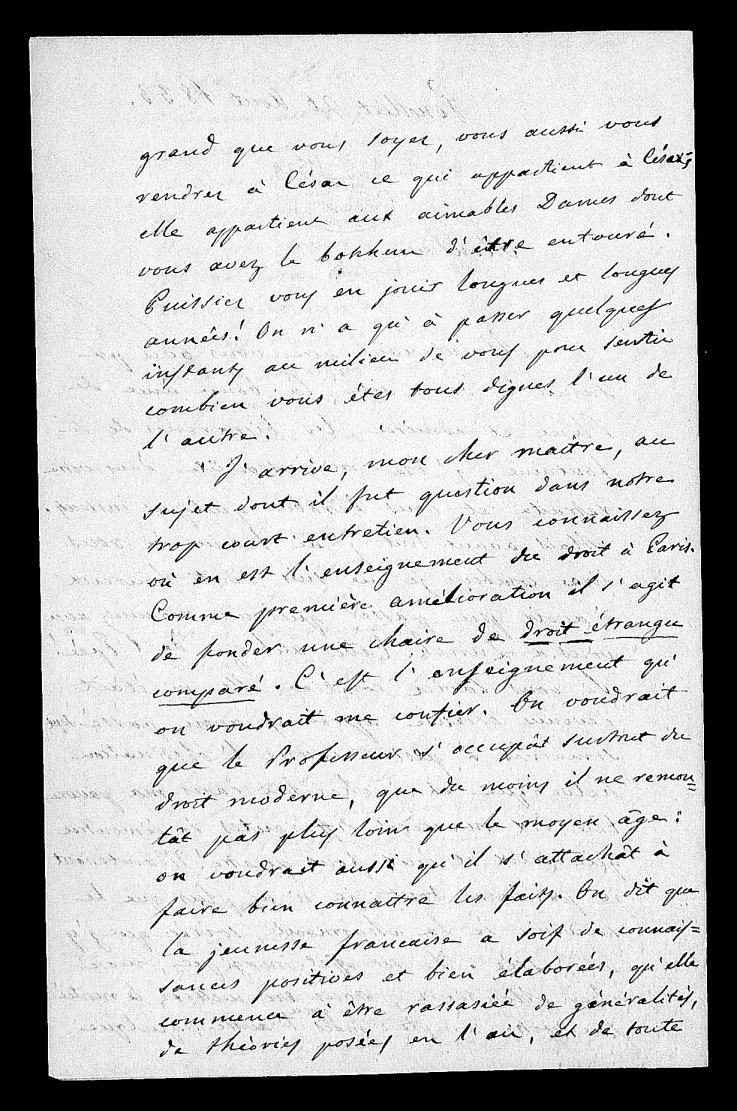 grand que vous soyez, vous aussi vous
rendrez à César ce qui appartient à César;
elle appartient aux aimables Dames dont
vous avez le bonheur d'être entouré.
Puissiez vous en jouir longues et longues
années! On n'a qu'à passer quelques
instants au milieu de vous pour sentir
combien vous êtes tous dignes l'un de
l'autre.
J'arrive, mon cher maître, au
sujet dont il fut question dans notre
trop court entretien. Vous connaissez
où en est l'enseignement du droit à Paris.
Comme première amélioration il s'agit
de fonder une chaire de droit étranger
comparé. C'est l'enseignement qu'
on voudrait me confier. On voudrait
que le Professeur s'occupât surtout du
droit moderne, que du moins il ne remon-
tât pas plus loin que le moyen âge:
on voudrait aussi qu'il s'attachât à
faire bien connaître les faits. On dit que
la jeunesse francaise a soif de connais-
sances positives et bien élaborées, qu'elle
commence à être rassasiée de généralités,
de théories posées en l'air, et de toute